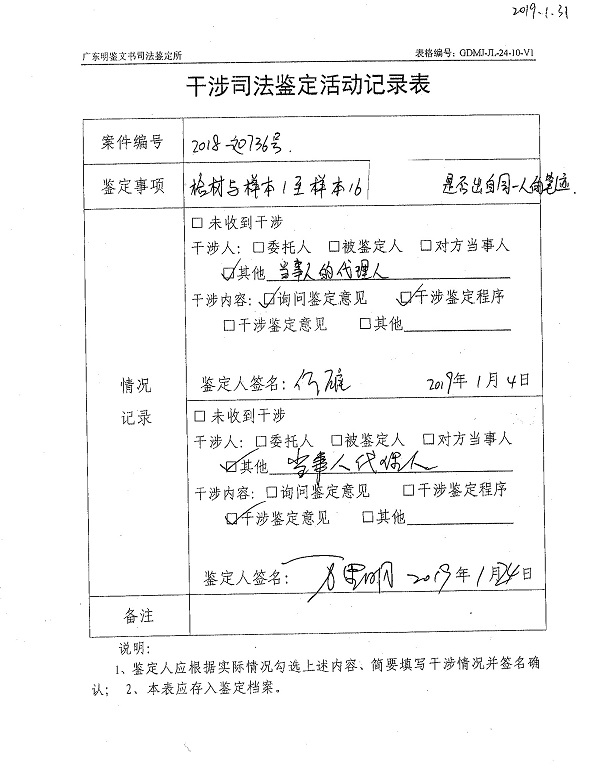 2019.1.31
广东明鉴文书司法鉴定所 表格编号：GDMJ-JL-24-10-V1
干涉司法鉴定活动记录表
案件编号 2018 736号.
鉴定事项 检材与样本1至样本16 是否出自同一人的笔迹.
□未收到干涉
干涉人：□委托人 □被鉴定人 □对方当事人
☑其他 当事人的代理人
干涉内容：☑询问鉴定意见 ☑干涉鉴定程序
□干涉鉴定意见 □其他
鉴定人签名： 2019年1月4日
情况
记录
□未收到干涉
干涉人：□委托人 □被鉴定人 □对方当事人
☑其他 当事人代理人
干涉内容：□询问鉴定意见 □干涉鉴定程序
☑干涉鉴定意见 □其他
鉴定人签名： 2019年1月24日
备注
说明：
1、鉴定人应根据实际情况勾选上述内容、简要填写干涉情况并签名确
认； 2、本表应存入鉴定档案。